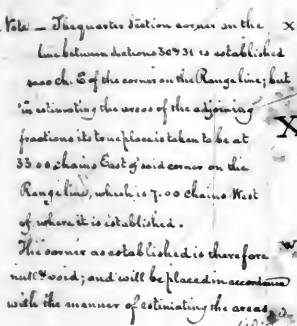 Note — The quarter Section corner on the
line between Sections 30 & 31 is established
40.00 ch. E of the corner on the Range line; but
in estimating the areas of the adjoining
fractions its true place is taken to be at
33.00 chains East of said corner on the
Range line, which is 7.00 chains West
of where it is established.
This corner as established is therefore
null & void; and will be placed in accordance
with the manner of estimating the areas